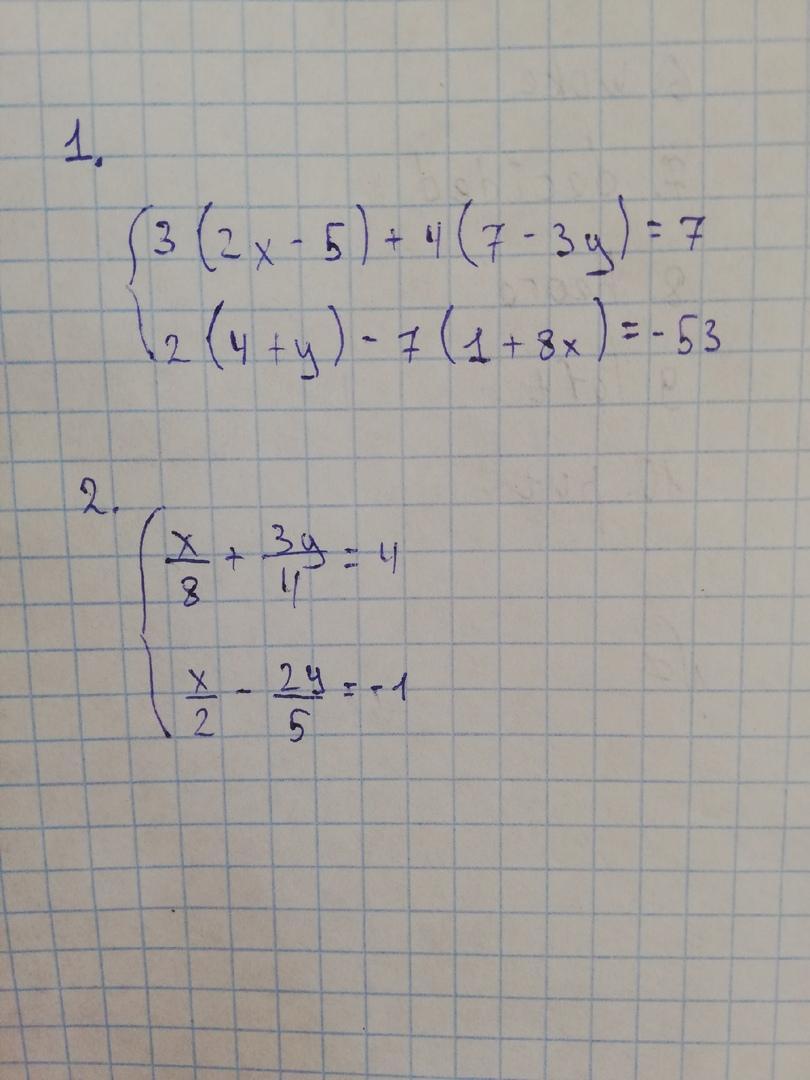 1.
3(2x - 5) + 4(7 - 3y) = 7
2(4 + y) - 7(1 + 8x) = -53
2.
x/8 + 3y/4 = 4
x/2 - 2y/5 = -1